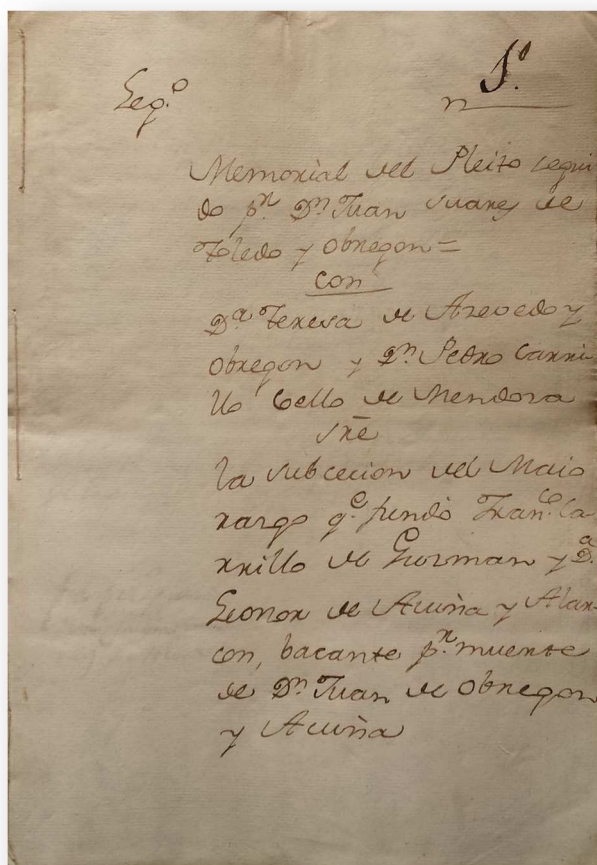 Leg.º
n 5.º
Memorial del Pleito segui
do p.r D.n Juan Suarez de
Toledo y Obregon=
con
D.a Teresa de Azevedo y
Obregon y D.n Pedro Carri
llo Coello de Mendoza
sre
la subcecion del Maio
razgo q.e fundó Fran.co Ca
rrillo de Guzman y D.a
Leonor de Acuña y Alar-
con, bacante p.r muerte
de D.n Juan de Obregon
y Acuña